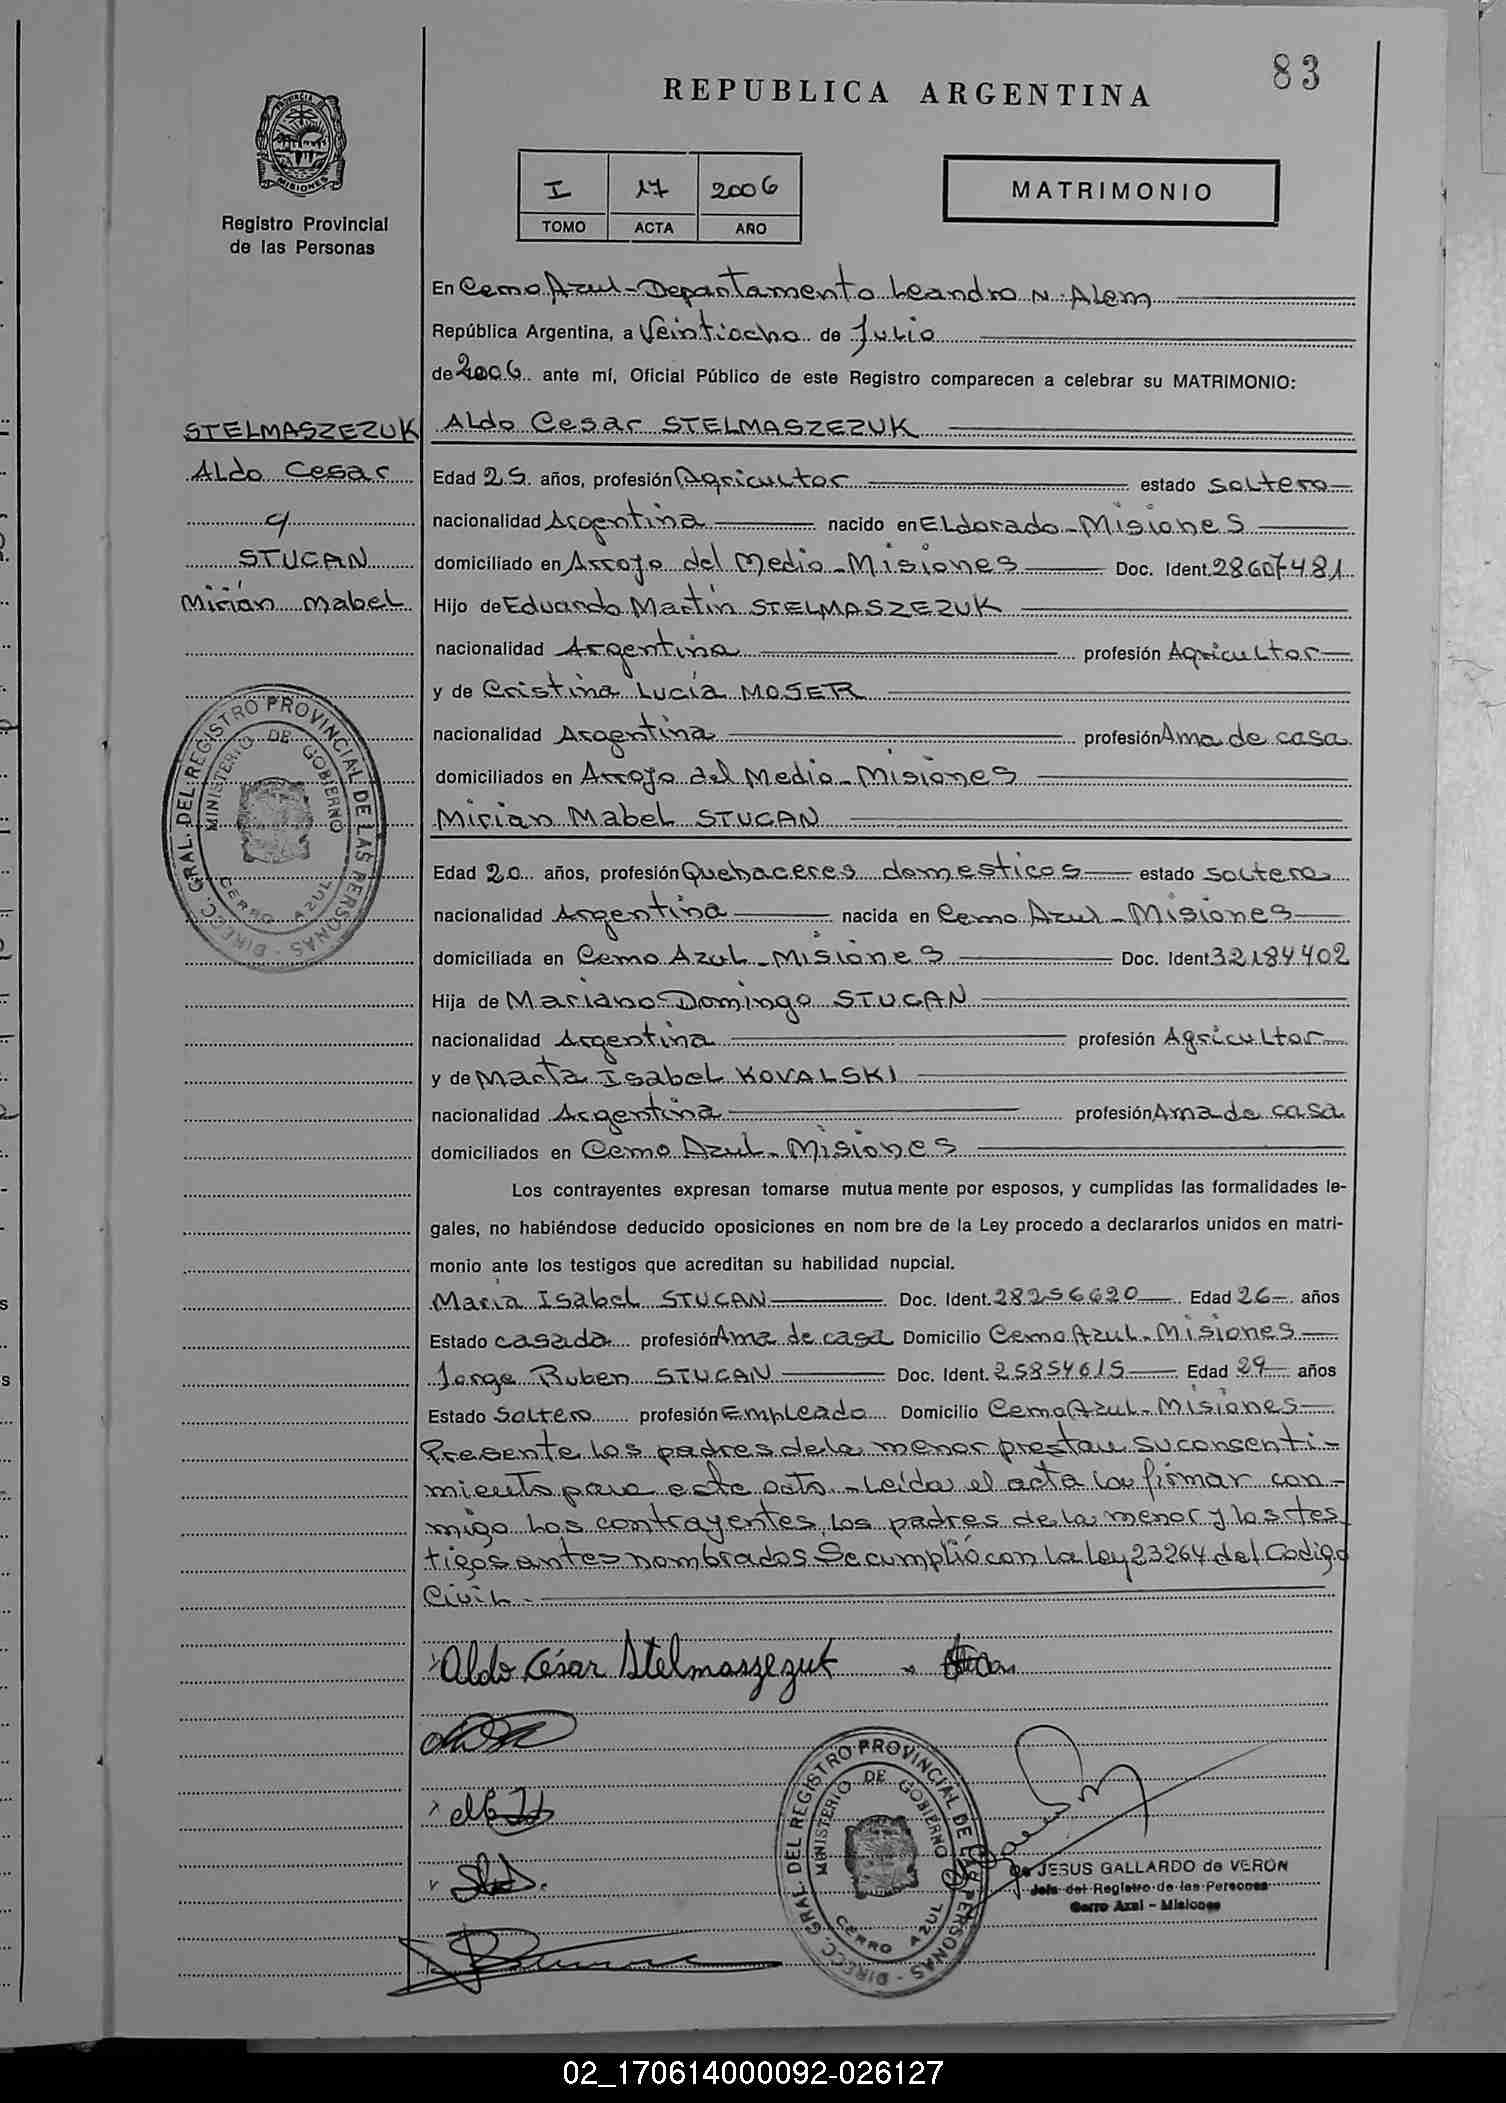 83
REPUBLICA ARGENTINA
PROVINCIA DE
MISIONES
Registro Provincial
de las Personas
I 17 2006
TOMO ACTA AÑO
MATRIMONIO
En Cerro Azul - Departamento Leandro N. Alem
República Argentina, a Veintiocho de Julio
de 2006 ante mí, Oficial Público de este Registro comparecen a celebrar su MATRIMONIO:
STELMASZEZUK
Aldo Cesar
c/
STUCAN
Mirian Mabel
Aldo Cesar STELMASZEZUK
Edad 25 años, profesión Agricultor estado soltero
nacionalidad Argentina nacido en Eldorado - Misiones
domiciliado en Arroyo del Medio - Misiones Doc. Ident. 28607481
Hijo de Eduardo Martín STELMASZEZUK
nacionalidad Argentina profesión Agricultor
y de Cristina Lucía MOSER
nacionalidad Argentina profesión Ama de casa
domiciliados en Arroyo del Medio - Misiones
Mirian Mabel STUCAN
Edad 20 años, profesión Quehaceres domesticos estado soltera
nacionalidad Argentina nacida en Cerro Azul - Misiones
domiciliada en Cerro Azul - Misiones Doc. Ident 32184402
Hija de Mariano Domingo STUCAN
nacionalidad Argentina profesión Agricultor
y de Marta Isabel KOVALSKI
nacionalidad Argentina profesión Ama de casa
domiciliados en Cerro Azul - Misiones
Los contrayentes expresan tomarse mutua mente por esposos, y cumplidas las formalidades le-
gales, no habiéndose deducido oposiciones en nom bre de la Ley procedo a declararlos unidos en matri-
monio ante los testigos que acreditan su habilidad nupcial.
Maria Isabel STUCAN Doc. Ident. 28256620 Edad 26 años
Estado casada profesión Ama de casa Domicilio Cerro Azul - Misiones
Jorge Ruben STUCAN Doc. Ident. 25854615 Edad 29 años
Estado Soltero profesión Empleado Domicilio Cerro Azul - Misiones
Presente los padres de la menor prestan su consenti-
miento para este acto. - Leída el acta la firmar con-
migo los contrayentes, los padres de la menor y los tes
tigos antes nombrados. Se cumplió con la Ley 23264 del Codigo
Civil.
Aldo César Stelmaszezuk
DIRECC. GRAL. DEL REGISTRO PROVINCIAL DE LAS PERSONAS
MINISTERIO DE GOBIERNO
CERRO AZUL
DIRECC. GRAL. DEL REGISTRO PROVINCIAL DE LAS PERSONAS
MINISTERIO DE GOBIERNO
CERRO AZUL
JESUS GALLARDO de VERON
Jefe del Registro de las Personas
Cerro Azul - Misiones
02_170614000092-026127